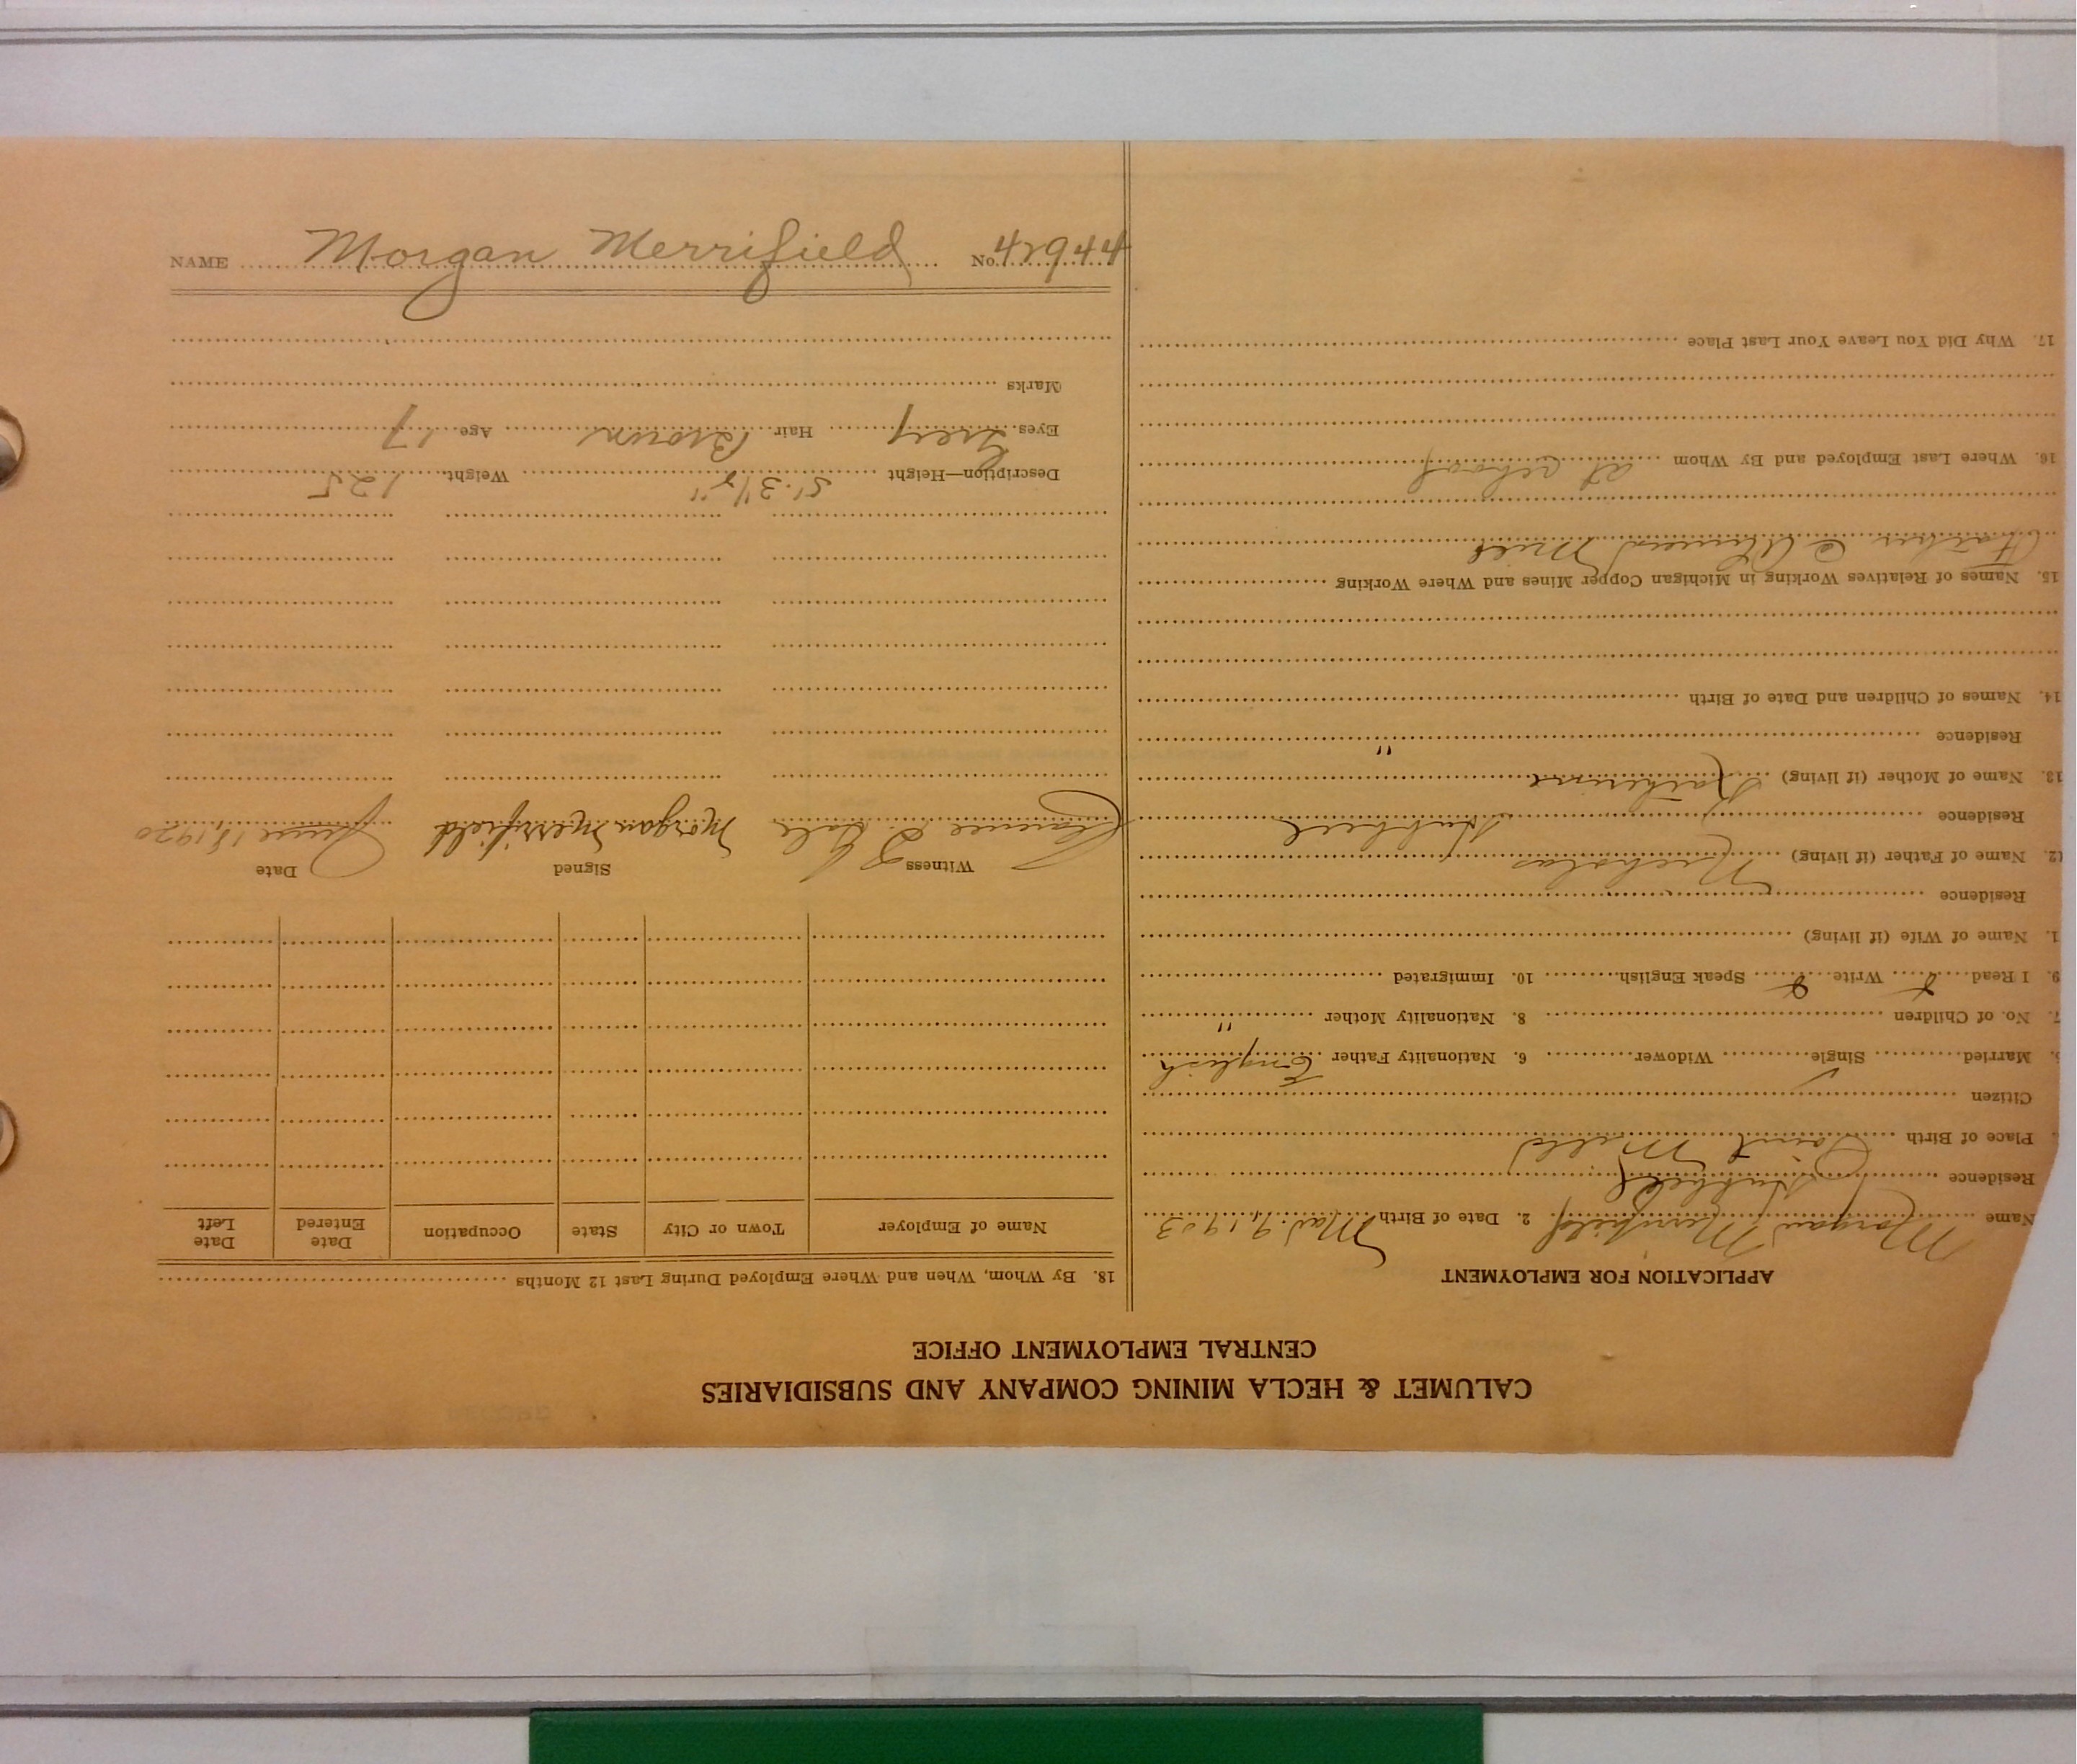 CALUMET & HECLA MINING COMPANY AND SUBSIDIARIES
CENTRAL EMPLOYMENT OFFICE
APPLICATION FOR EMPLOYMENT
Name Morgan Merrifield 2. Date of Birth Mar. 9, 1903
Residence Hubbell
Place of Birth Point Mills
Citizen
Married Single Widower 6. Nationality Father English
No. of Children 8. Nationality Mother "
9. I Read Write Speak English 10. Immigrated
1. Name of Wife (if living)
Residence
2. Name of Father (if living) Nicholas
Residence Hubbell
13. Name of Mother (if living) Katherine
Residence "
14. Names of Children and Date of Birth
15. Names of Relatives Working in Michigan Copper Mines and Where Working
Father @ Ahmeek Mill
16. Where Last Employed and By Whom at school
17. Why Did You Leave Your Last Place
18. By Whom, When and Where Employed During Last 12 Months
Name of Employer Town or City State Occupation Date Entered Date Left
Witness Signed Date
Clarence D. Morgan Merrifield June 18, 1920
Description—Height 5'. 3 1/2" Weight 125
Eyes Grey Hair Brown Age 17
Marks
NAME Morgan Merrifield No. 42944